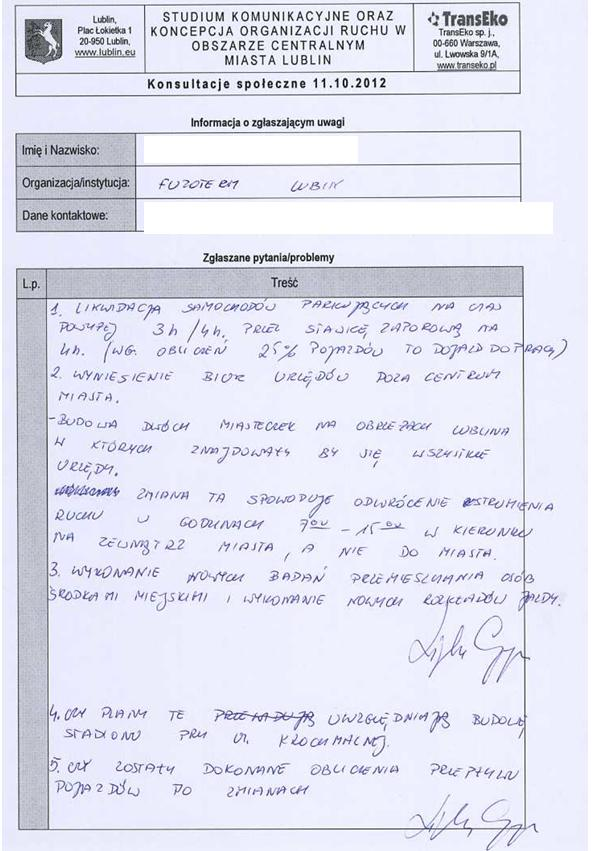 Lublin,
Plac Łokietka 1
20-950 Lublin,
www.lublin.eu
STUDIUM KOMUNIKACYJNE ORAZ
KONCEPCJA ORGANIZACJI RUCHU W
OBSZARZE CENTRALNYM
MIASTA LUBLIN
TransEko
TransEko sp. j.,
00-660 Warszawa,
ul. Lwowska 9/1A,
www.transeko.pl
Konsultacje społeczne 11.10.2012
Informacja o zgłaszającym uwagi
Imię i Nazwisko:
Organizacja/instytucja: FUZOTERM LUBLIN
Dane kontaktowe:
Zgłaszane pytania/problemy
L.p. Treść
1. LIKWIDACJA SAMOCHODÓW PARKUJĄCYCH NA CZAS
POWYŻEJ 3h/4h. PRZEZ STAWKĘ ZAPOROWĄ NA
4h. (WG. OBLICZEŃ 25% POJAZDÓW TO DOJAZD DO PRACY)
2. WYNIESIENIE BIUR URZĘDÓW POZA CENTRUM
MIASTA.
- BUDOWA DWÓCH MIASTECZEK NA OBRZEŻACH LUBLINA
W KTÓRYCH ZNAJDOWAŁY BY SIĘ WSZYSTKIE
URZĘDY.
ZMIANA TA SPOWODUJE ODWRÓCENIE STRUMIENIA
RUCHU W GODZINACH 7 00 - 15 00 W KIERUNKU
NA ZEWNĄTRZ MIASTA, A NIE DO MIASTA.
3. WYKONANIE NOWYCH BADAŃ PRZEMIESZCZANIA OSÓB
ŚRODKAMI MIEJSKIMI I WYKONANIE NOWYCH ROZKŁADÓW JAZDY.
4. CZY PLANY TE UWZGLĘDNIAJĄ BUDOWĘ
STADIONU PRZY UL. KROCHMALNEJ.
5. CZY ZOSTAŁY DOKONANE OBLICZENIA PRZEPŁYWU
POJAZDÓW PO ZMIANACH